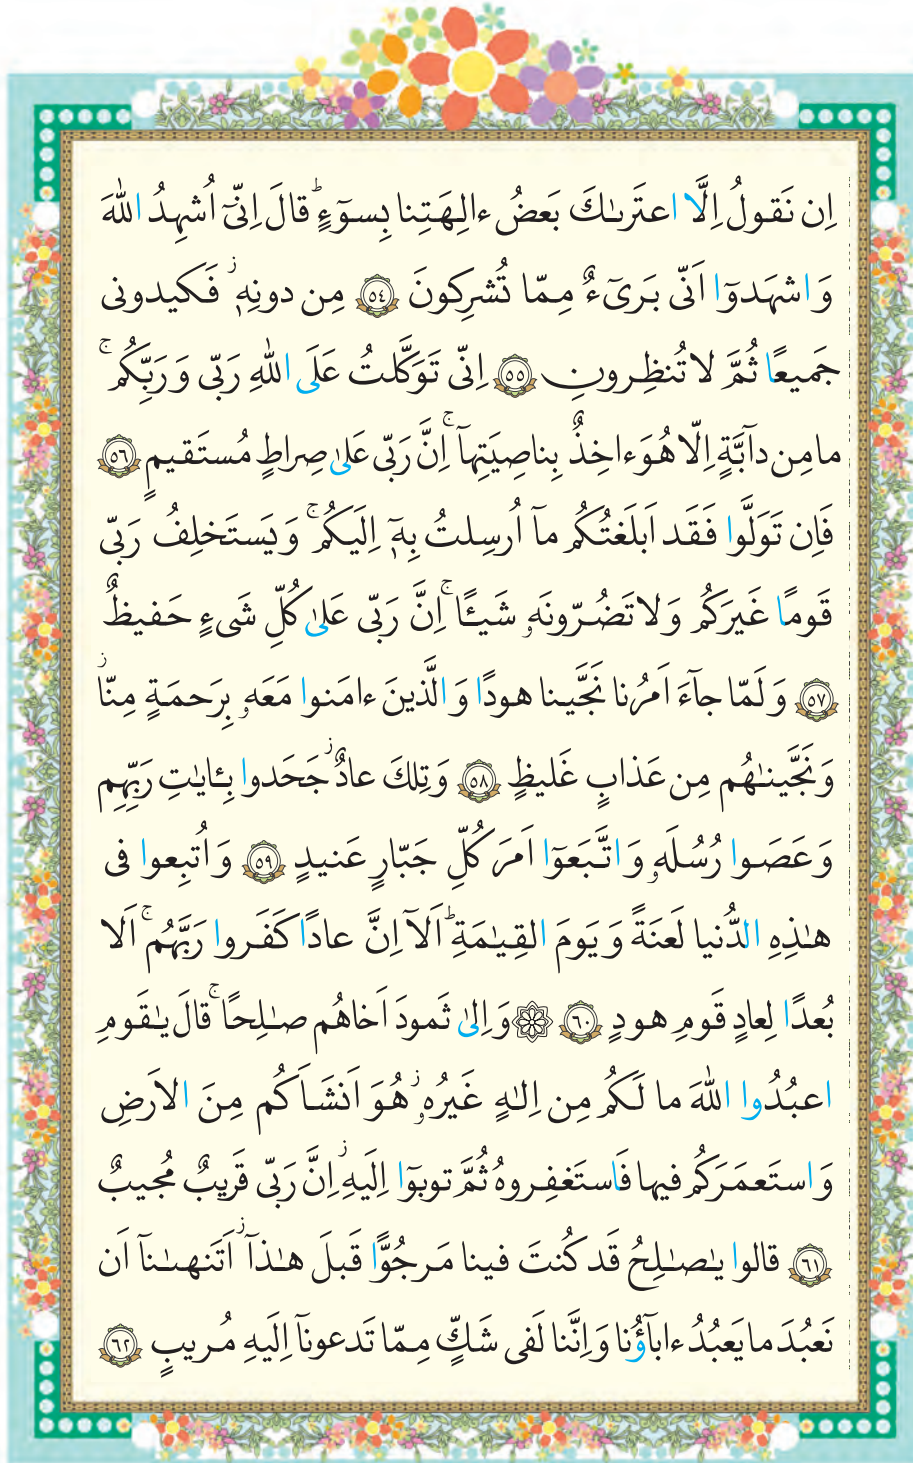 اِن نَقولُ اِلَّا اعتَرىٰكَ بَعضُ ءالِهَتِنا بِسوٓءٍ ۗ قالَ اِنّىٓ اُشهِدُ اللهَ
وَ اشهَدوٓا اَنّى بَرىٓءٌ مِمّا تُشرِكونَ ﴿٥٤﴾ مِن دونِهٖ ۖ فَكيدونى
جَميعًا ثُمَّ لا تُنظِرونِ ﴿٥٥﴾ اِنّى تَوَكَّلتُ عَلَى اللهِ رَبّى وَ رَبِّكُم ۚ
ما مِن دآبَّةٍ اِلّا هُوَ ءاخِذٌ بِناصِيَتِهآ ۚ اِنَّ رَبّى عَلىٰ صِراطٍ مُستَقيمٍ ﴿٥٦﴾
فَاِن تَوَلَّوا فَقَد اَبلَغتُكُم مآ اُرسِلتُ بِهٖٓ اِلَيكُم ۚ وَ يَستَخلِفُ رَبّى
قَومًا غَيرَكُم وَ لا تَضُرّونَهٗ شَيـًٔا ۚ اِنَّ رَبّى عَلىٰ كُلِّ شَىءٍ حَفيظٌ
﴿٥٧﴾ وَ لَمّا جآءَ اَمرُنا نَجَّينا هودًا وَ الَّذينَ ءامَنوا مَعَهٗ بِرَحمَةٍ مِنّا ۖ
وَ نَجَّينٰهُم مِن عَذابٍ غَليظٍ ﴿٥٨﴾ وَ تِلكَ عادٌ ۖ جَحَدوا بِـٔايٰتِ رَبِّهِم
وَ عَصَوا رُسُلَهٗ وَ اتَّبَعوٓا اَمرَ كُلِّ جَبّارٍ عَنيدٍ ﴿٥٩﴾ وَ اُتبِعوا فى
هٰذِهِ الدُّنيا لَعنَةً وَ يَومَ القِيٰمَةِ ۗ اَلآ اِنَّ عادًا كَفَروا رَبَّهُم ۚ اَلا
بُعدًا لِعادٍ قَومِ هودٍ ﴿٦٠﴾ ۞ وَ اِلىٰ ثَمودَ اَخاهُم صٰلِحًا ۚ قالَ يٰقَومِ
اعبُدُوا اللهَ ما لَكُم مِن اِلٰهٍ غَيرُهٗ ۖ هُوَ اَنشَاَكُم مِنَ الاَرضِ
وَ استَعمَرَكُم فيها فَاستَغفِروهُ ثُمَّ توبوٓا اِلَيهِ ۖ اِنَّ رَبّى قَريبٌ مُجيبٌ
﴿٦١﴾ قالوا يٰصٰلِحُ قَد كُنتَ فينا مَرجُوًّا قَبلَ هٰذآ ۖ اَتَنهىٰنآ اَن
نَعبُدَ ما يَعبُدُ ءابآؤُنا وَ اِنَّنا لَفى شَكٍّ مِمّا تَدعونآ اِلَيهِ مُريبٍ ﴿٦٢﴾